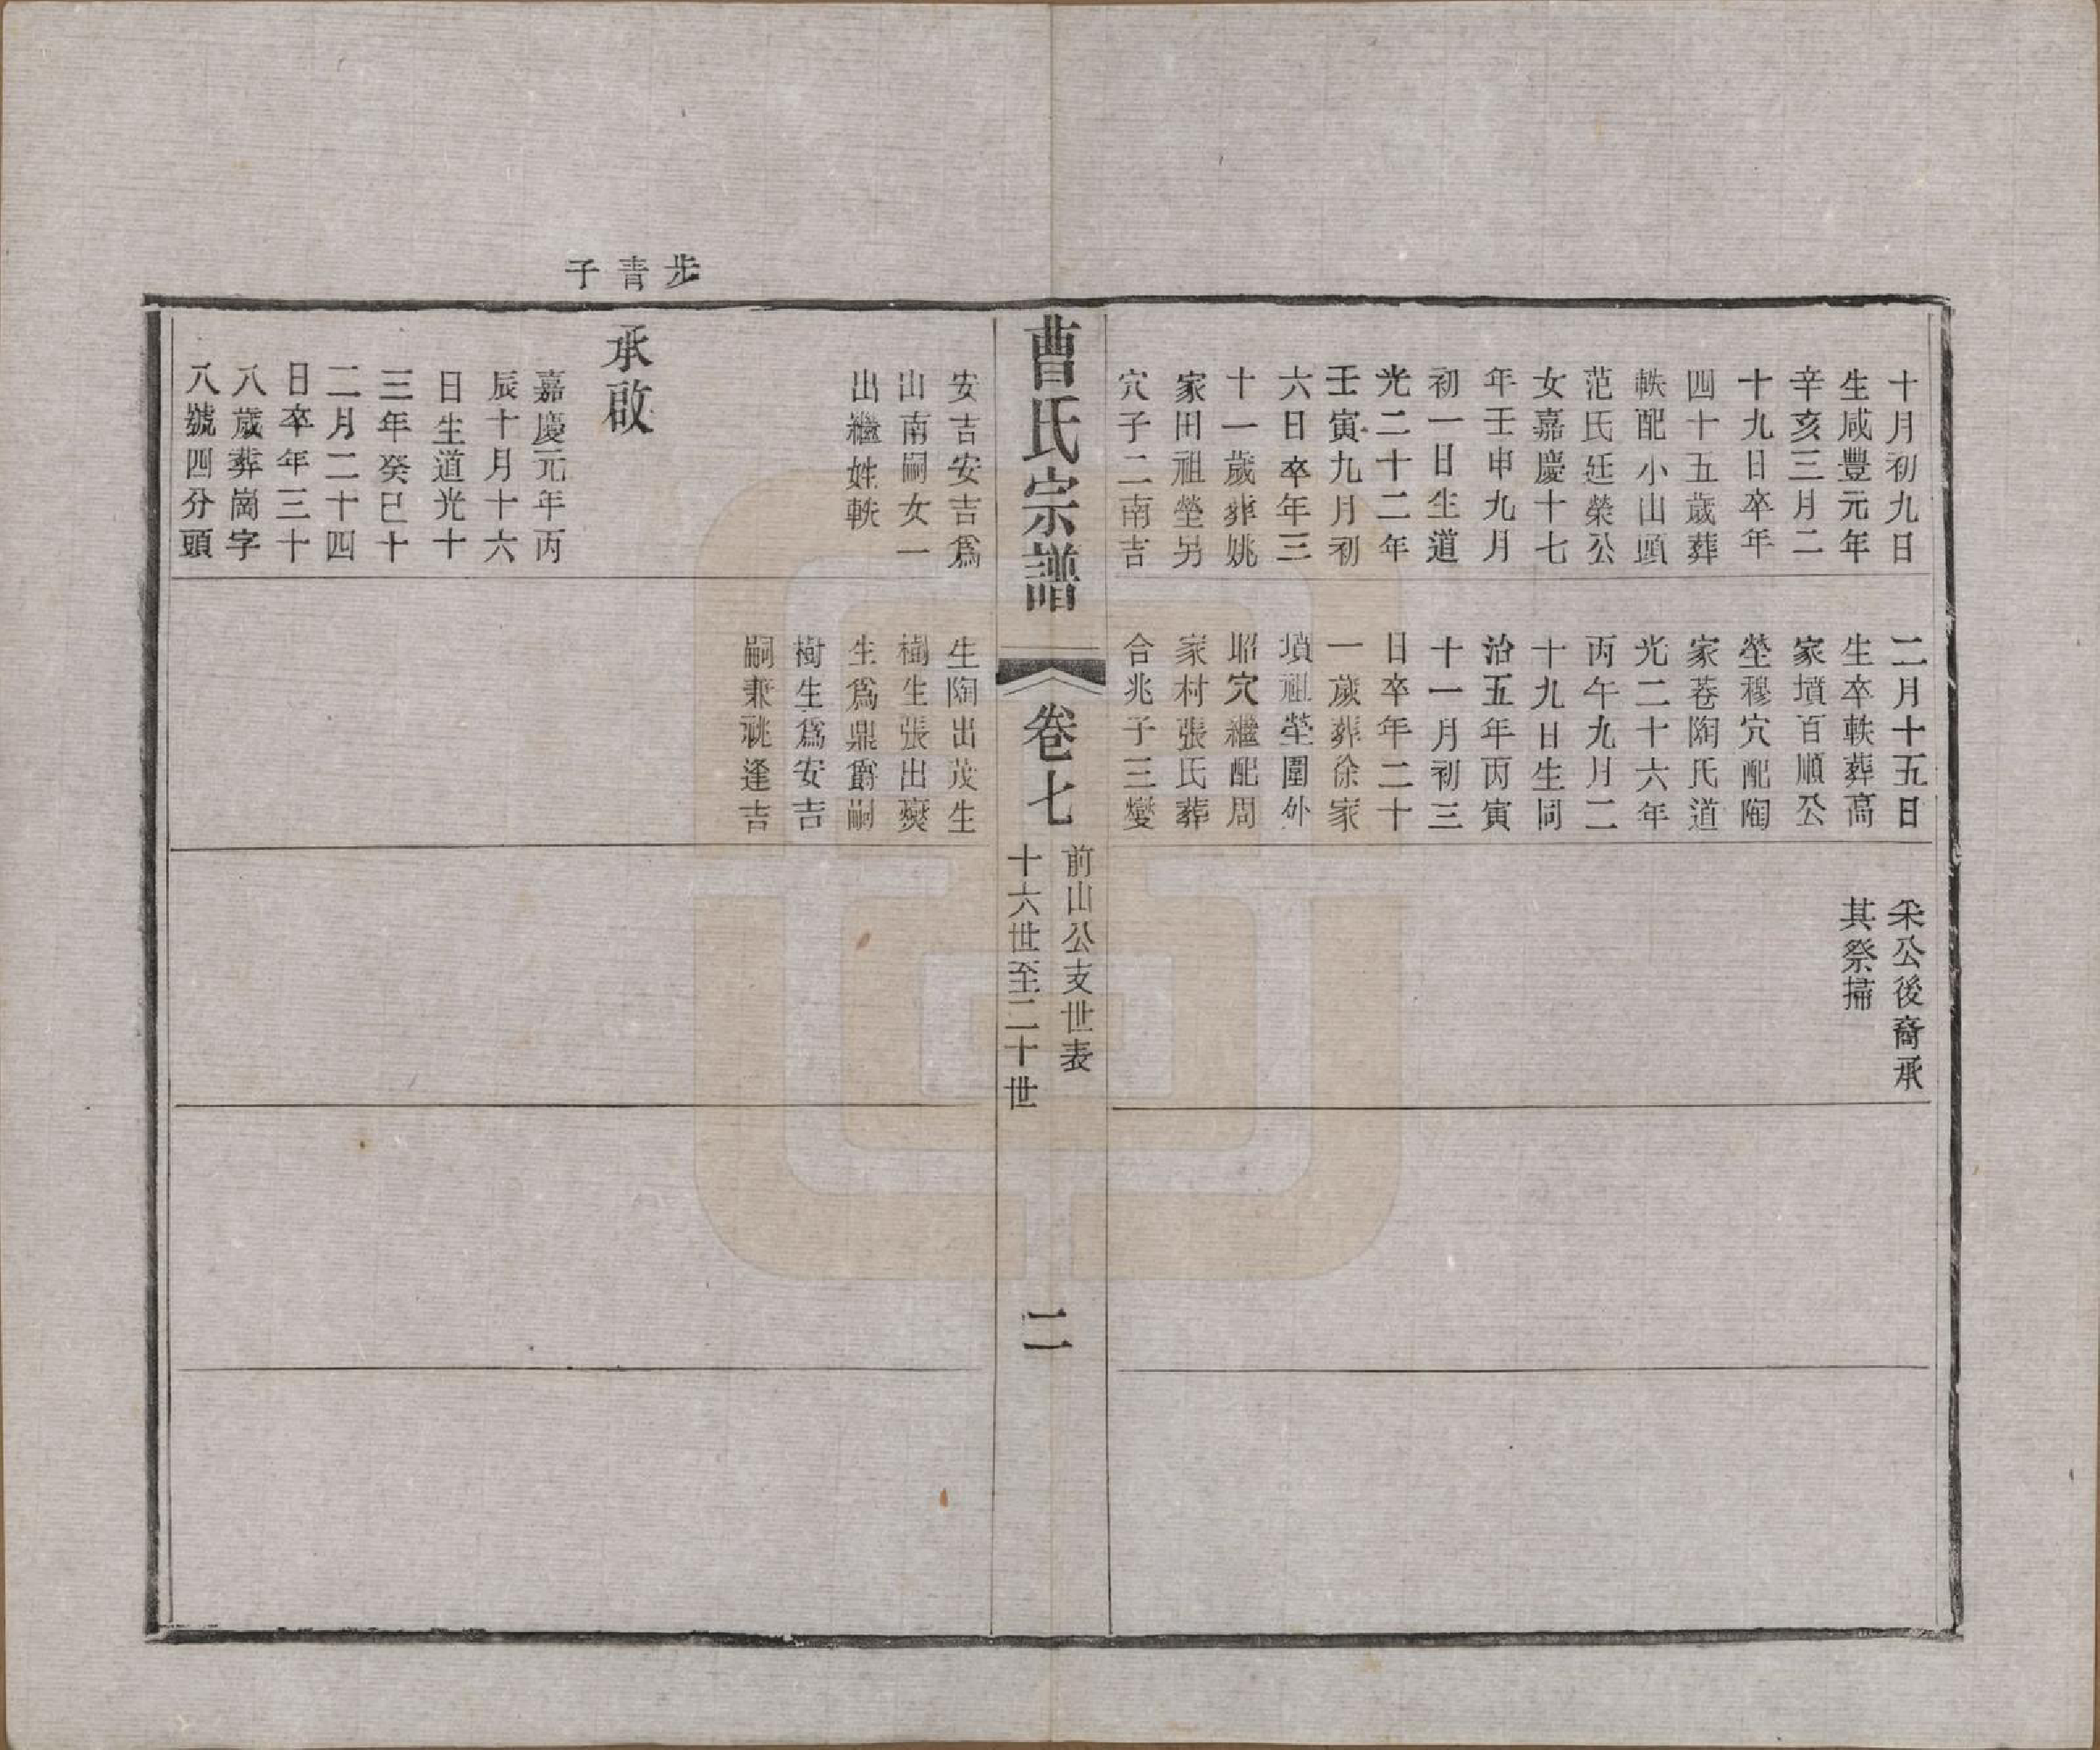 十月初九日
生咸豐元年
辛亥三月二
十九日卒年
四十五歲葬
軼配小山頭
范氏廷榮公
女嘉慶十七
年壬申九月
初一日生道
光二十二年
壬寅九月初
六日卒年三
十一歲葬姚
家田祖塋另
穴子二南吉
二月十五日
生卒軼葬高
家墳百順公
塋穆穴配陶
家巷陶氏道
光二十六年
丙午九月二
十九日生同
治五年丙寅
十一月初三
日卒年二十
一歲葬徐家
墳祖塋圍外
昭穴繼配周
家村張氏葬
合兆子三燮
采公後裔承
其祭掃
曹氏宗譜
卷七
前山公支世表
十六世至二十世
二
安吉安吉爲
山南嗣女一
出繼姓軼
步青子
承啟
嘉慶元年丙
辰十月十六
日生道光十
三年癸巳十
二月二十四
日卒年三十
八歲葬崗字
八號四分頭
生陶出茂生
樹生張出燮
生爲鼎爵嗣
樹生爲安吉
嗣兼祧逢吉